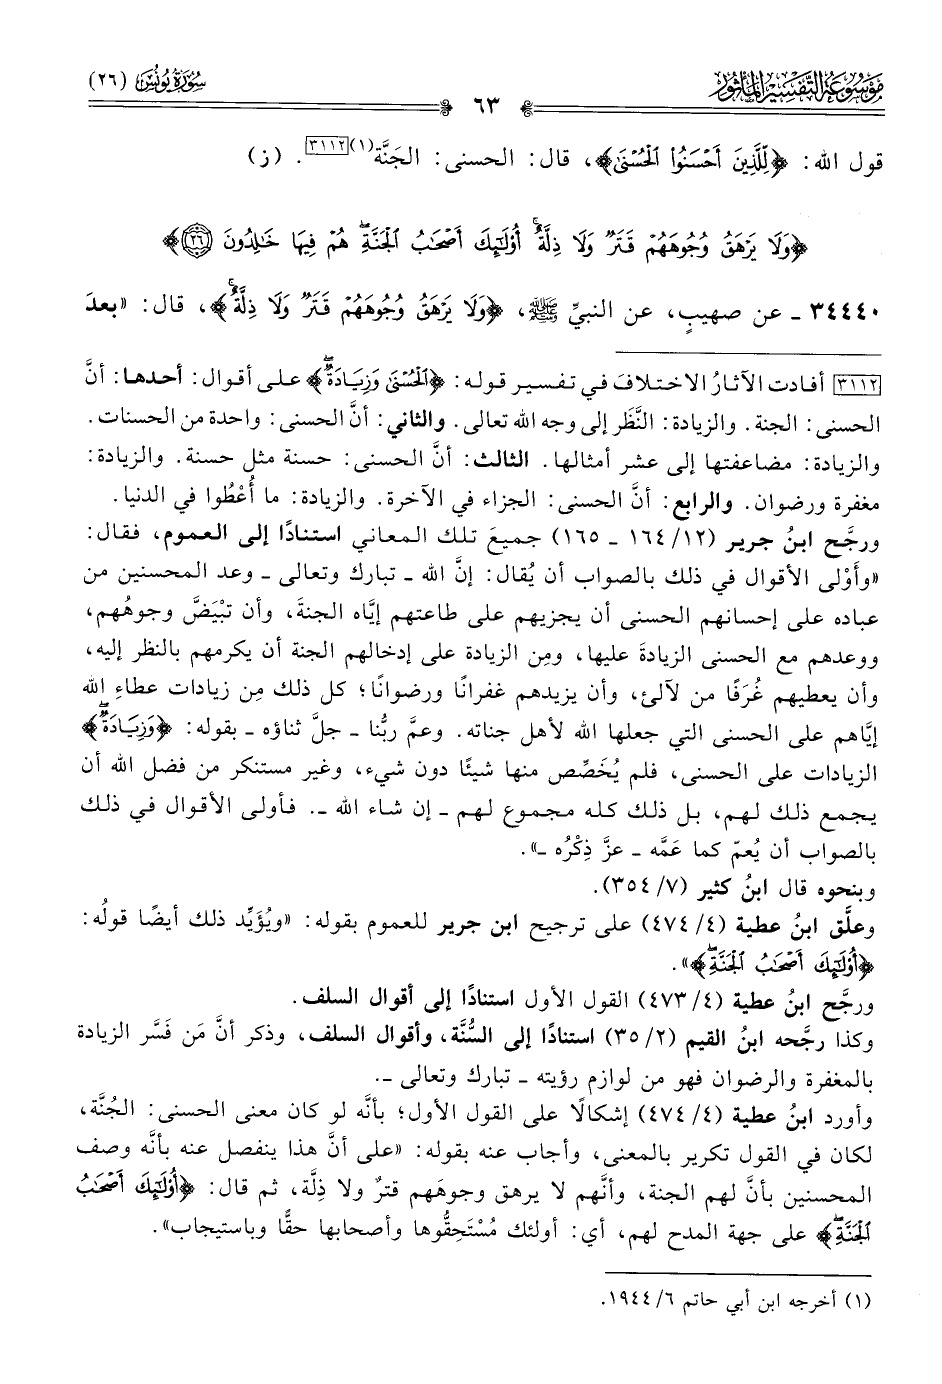 مَوْسُوعَة التَّفْسِير المَأْثُور
٦٣
سُورَةُ يُونُسَ (٢٦)
قول الله: ﴿لِّلَّذِينَ أَحۡسَنُواْ ٱلۡحُسۡنَىٰ﴾، قال: الحسنى: الجَنَّة(١)[٣١١٢]. (ز)
﴿وَلَا يَرۡهَقُ وُجُوهَهُمۡ قَتَرٞ وَلَا ذِلَّةٌۚ أُوْلَٰٓئِكَ أَصۡحَٰبُ ٱلۡجَنَّةِۖ هُمۡ فِيهَا خَٰلِدُونَ ٢٦﴾
٣٤٤٤٠ ـ عن صهيبٍ، عن النبيِّ ﷺ، ﴿وَلَا يَرۡهَقُ وُجُوهَهُمۡ قَتَرٞ وَلَا ذِلَّةٌۚ﴾، قال: «بعدَ
[٣١١٢] أفادت الآثارُ الاختلافَ في تفسير قوله: ﴿ٱلۡحُسۡنَىٰ وَزِيَادَةٞۖ﴾ على أقوال: أحدها: أنَّ
الحسنى: الجنة. والزيادة: النَّظَر إلى وجه الله تعالى. والثاني: أنَّ الحسنى: واحدة من الحسنات.
والزيادة: مضاعفتها إلى عشر أمثالها. الثالث: أنَّ الحسنى: حسنة مثل حسنة. والزيادة:
مغفرة ورضوان. والرابع: أنَّ الحسنى: الجزاء في الآخرة. والزيادة: ما أُعْطُوا في الدنيا.
ورجَّح ابنُ جرير (١٢/ ١٦٤ ـ ١٦٥) جميعَ تلك المعاني استنادًا إلى العموم، فقال:
«وأَوْلى الأقوال في ذلك بالصواب أن يُقال: إنَّ الله ـ تبارك وتعالى ـ وعد المحسنين من
عباده على إحسانهم الحسنى أن يجزيهم على طاعتهم إيَّاه الجنةَ، وأن تبْيَضَّ وجوهُهم،
ووعدهم مع الحسنى الزيادةَ عليها، ومِن الزيادة على إدخالهم الجنة أن يكرمهم بالنظر إليه،
وأن يعطيهم غُرَفًا من لآلئ، وأن يزيدهم غفرانًا ورضوانًا؛ كل ذلك مِن زيادات عطاءِ الله
إيَّاهم على الحسنى التي جعلها الله لأهل جناته. وعمَّ ربُّنا ـ جلَّ ثناؤه ـ بقوله: ﴿وَزِيَادَةٞۖ﴾
الزيادات على الحسنى، فلم يُخَصِّص منها شيئًا دون شيء، وغير مستنكر من فضل الله أن
يجمع ذلك لهم، بل ذلك كله مجموع لهم ـ إن شاء الله ـ. فأولى الأقوال في ذلك
بالصواب أن يُعمّ كما عَمَّه ـ عزَّ ذِكْرُه ـ».
وبنحوه قال ابنُ كثير (٧/ ٣٥٤).
وعلَّق ابنُ عطية (٤/ ٤٧٤) على ترجيح ابن جرير للعموم بقوله: «ويُؤَيِّد ذلك أيضًا قولُه:
﴿أُوْلَٰٓئِكَ أَصۡحَٰبُ ٱلۡجَنَّةِۖ﴾».
ورجَّح ابنُ عطية (٤/ ٤٧٣) القول الأول استنادًا إلى أقوال السلف.
وكذا رجَّحه ابنُ القيم (٢/ ٣٥) استنادًا إلى السُّنَّة، وأقوال السلف، وذكر أنَّ مَن فَسَّر الزيادة
بالمغفرة والرضوان فهو من لوازم رؤيته ـ تبارك وتعالى ـ.
وأورد ابنُ عطية (٤/ ٤٧٤) إشكالًا على القول الأول؛ بأنه لو كان معنى الحسنى: الجُنَّة،
لكان في القول تكرير بالمعنى، وأجاب عنه بقوله: «على أنَّ هذا ينفصل عنه بأنَّه وصف
المحسنين بأنَّ لهم الجنة، وأنَّهم لا يرهق وجوهَهم قترٌ ولا ذِلَّة، ثم قال: ﴿أُوْلَٰٓئِكَ أَصۡحَٰبُ
ٱلۡجَنَّةِۖ﴾ على جهة المدح لهم، أي: أولئك مُسْتَحِقُّوها وأصحابها حقًّا وباستيجاب».
(١) أخرجه ابن أبي حاتم ٦/ ١٩٤٤.